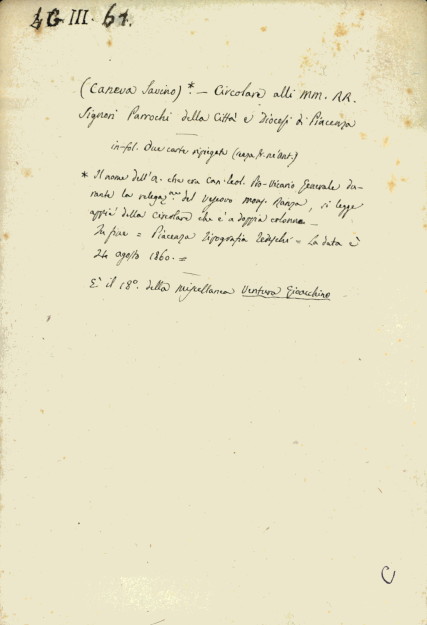 4G III. 61.
(Caneva Savino)*. — Circolare alli MM. RR.
Signori Parrochi della Città e Diocesi di Piacenza
in-fol. Due carte ripiegate
* Il nome dell'A. che era Can. Teol. Pro-Vicario Generale du-
rante la relegaz.ne del Vescovo Mons. Ranza, si legge
appiè della Circolare che è a doppia colonna —
In fine = Piacenza Tipografia Tedeschi = La data è
24 agosto 1860. =
E' il 18°. della miscellanea Ventura Gioacchino
C